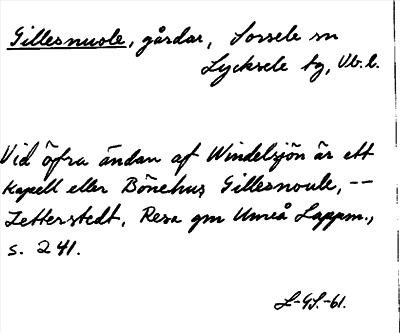 Gillesnuole, gårdar, Sorsele sn
Lycksele tg, Vb.l.
Vid öfra ändan af Windelsjön är ett
Kapell eller Bönehus Gillesnoule, --
Zetterstedt, Resa gm Umeå Lappm.,
s. 241.
L-GS.-61.